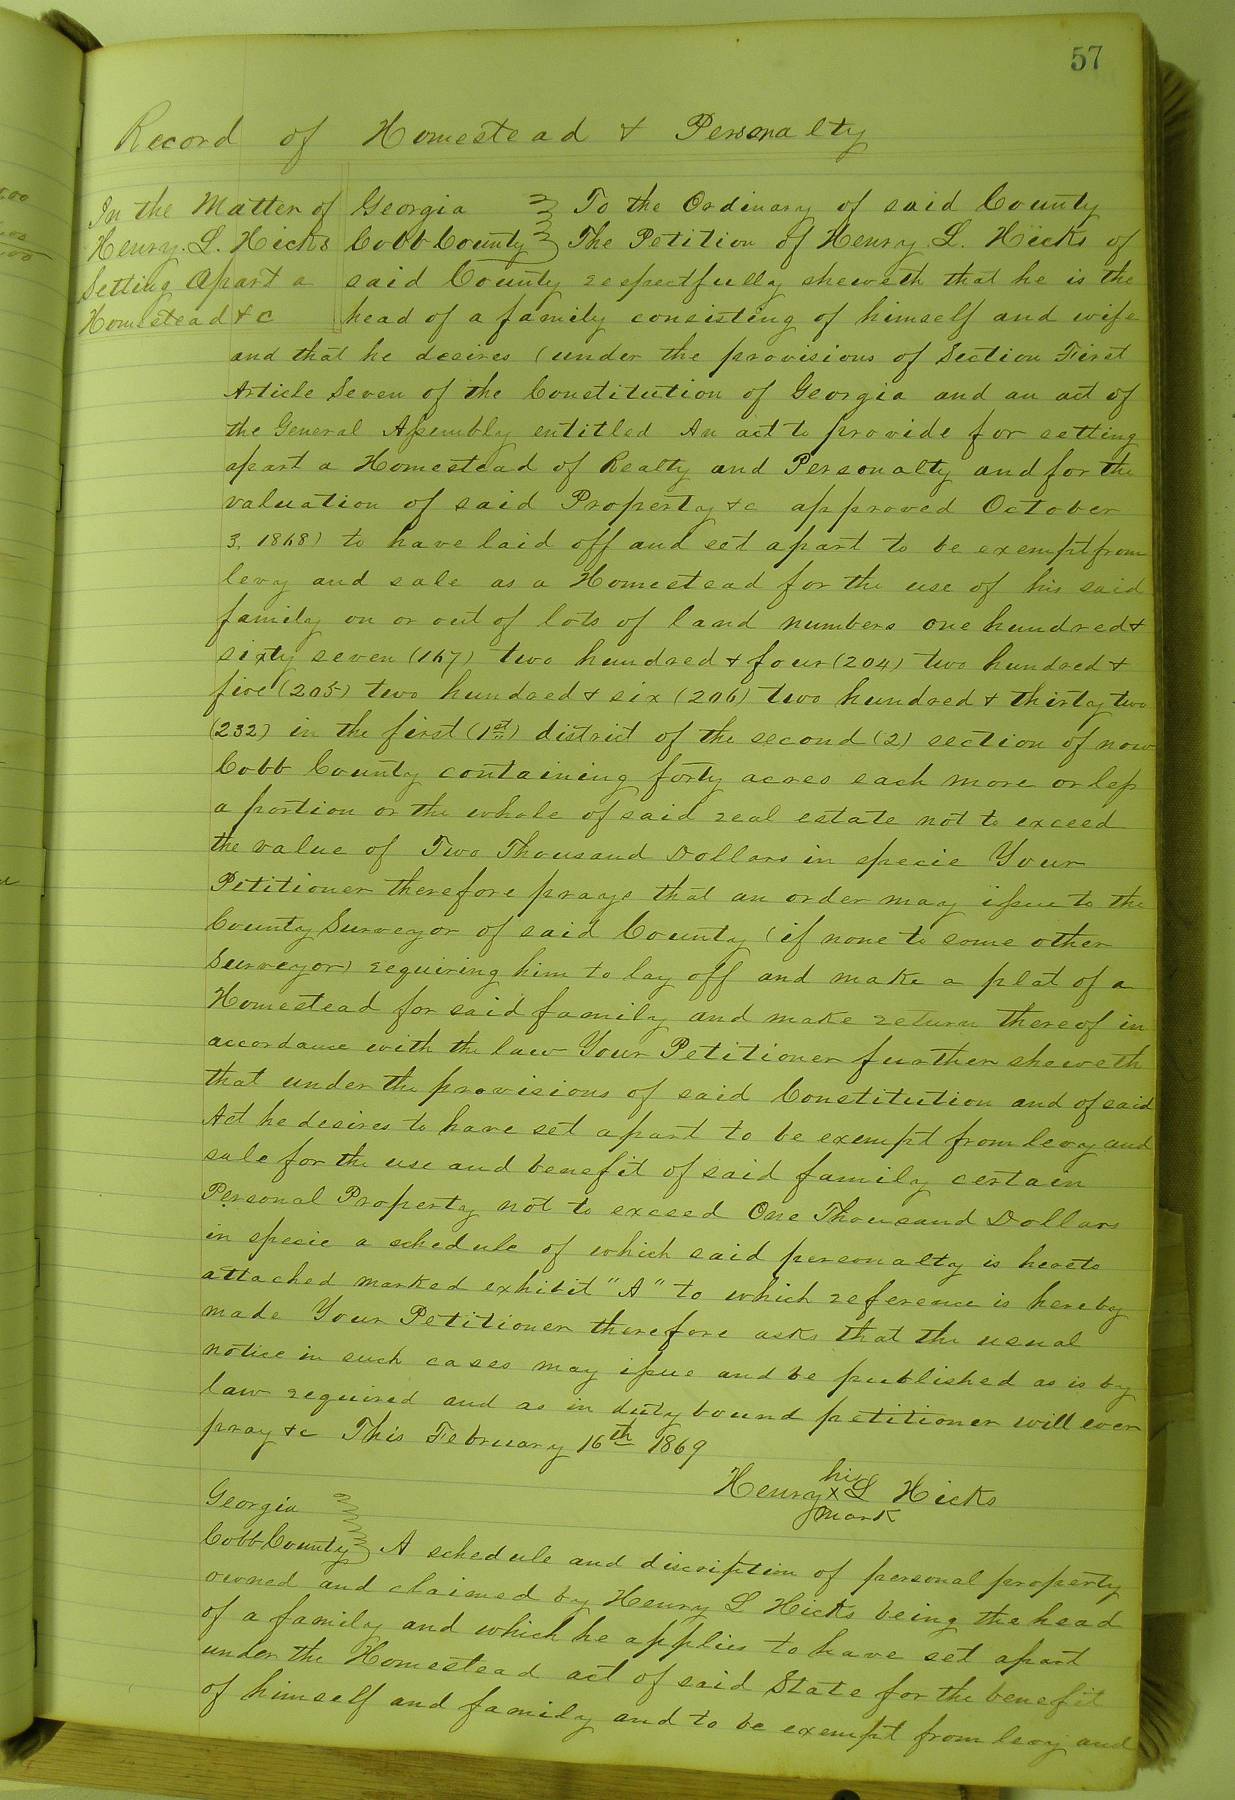 57
Record of Homestead & Personalty
In the Matter of
Henry. L. Hicks
Setting Apart a
Homestead & c
Georgia To the Ordinary of said County
Cobb County The Petition of Henry L. Hicks of
said County respectfully sheweth that he is the
head of a family consisting of himself and wife
and that he desires (under the provisions of Section First
Article Seven of the Constitution of Georgia and an act of
the General Assembly entitled An act to provide for setting
apart a Homestead of Realty and Personalty and for the
valuation of said Property &c approved October
3, 1868) to have laid off and set apart to be exempt from
levy and sale as a Homestead for the use of his said
family on or out of lots of land numbers one hundred &
sixty seven (167) two hundred & four (204) two hundred &
five (205) two hundred & six (206) two hundred & thirty two
(232) in the first (1st) district of the second (2) section of now
Cobb County containing forty acres each more or less
a portion or the whole of said real estate not to exceed
the value of Two Thousand Dollars in specie Your
Petitioner therefore prays that an order may issue to the
County Surveyor of said County (if none to some other
Surveyor) requiring him to lay off and make a plat of a
Homestead for said family and make return thereof in
accordance with the law Your Petitioner further sheweth
that under the provisions of said Constitution and of said
Act he desires to have set apart to be exempt from levy and
sale for the use and benefit of said family certain
Personal Property not to exceed One Thousand Dollars
in specie a schedule of which said personalty is hereto
attached marked exhibit "A" to which reference is hereby
made Your Petitioner therefore asks that the usual
notice in such cases may issue and be published as is by
law required and as in duty bound petitioner will ever
pray &c This February 16th 1869
his
Henry x L Hicks
mark
Georgia
Cobb County A schedule and discription of personal property
owned and claimed by Henry L Hicks being the head
of a family and which he applies to have set apart
under the Homestead act of said State for the benefit
of himself and family and to be exempt from levy and